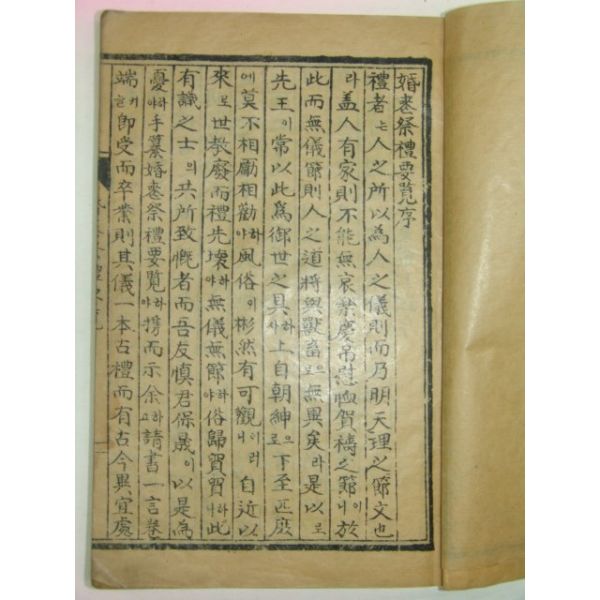 婚喪祭禮要覽序
禮者는人之所以為人之儀則而乃明天理之節文也
라盖人有家則不能無哀榮慶吊慰恤賀禱之節이니於
此而無儀節則人之道將與獸畜으로無異矣라是以로
先王이常以此為御世之具하사上自朝紳으로下至匹庶
에莫不相勵相勸하야風俗이彬然有可觀이러니自近以
來로世教廢而禮先壞하야無儀無節하야俗歸貿貿하니此
有識之士의共所致慨者而吾友慎君保晟이以是為
憂하야手纂婚喪祭禮要覽하야携而示余하고請書一言卷
端키한即受而卒業則其儀一本古禮而有古今異宜處